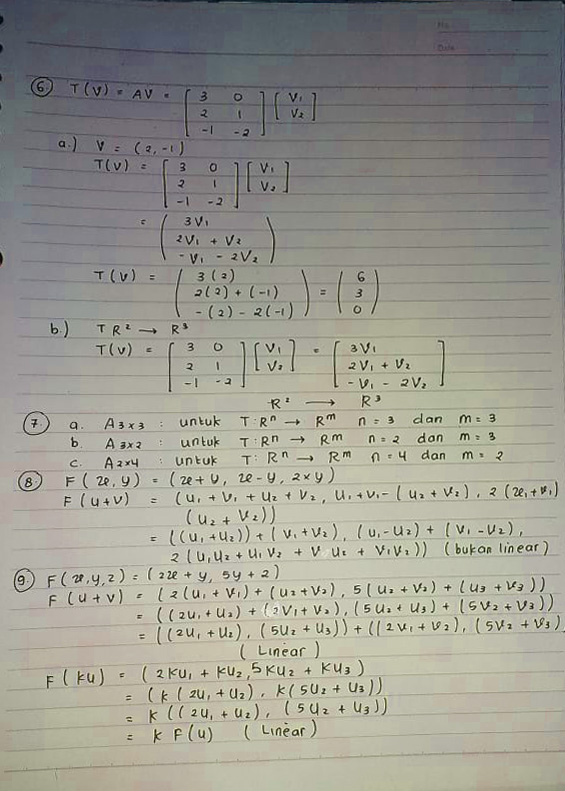 No
Date
6. T(V) = AV = [3 0 2 1 -1 -2] [V₁ V₂]
a.) V = (2, -1)
T(V) = [3 0 2 1 -1 -2] [V₁ V₂]
= (3V₁ 2V₁ + V₂ -V₁ - 2V₂)
T(V) = (3(2) 2(2) + (-1) -(2) - 2(-1)) = (6 3 0)
b.) T R² → R³
T(V) = [3 0 2 1 -1 -2] [V₁ V₂] = [3V₁ 2V₁ + V₂ -V₁ - 2V₂]
R² → R³
7. a. A3x3 : untuk T: Rⁿ → Rᵐ n = 3 dan m = 3
b. A3x2 : untuk T: Rⁿ → Rᵐ n = 2 dan m = 3
c. A2x4 : untuk T: Rⁿ → Rᵐ n = 4 dan m = 2
8. F(x, y) = (x + y, x - y, 2xy)
F(u+v) = (u₁ + v₁ + u₂ + v₂, u₁ + v₁ - (u₂ + v₂), 2(x₁ + v₁)
(u₂ + v₂))
= ((u₁ + u₂)) + (v₁ + v₂), (u₁ - u₂) + (v₁ - v₂),
2(u₁u₂ + u₁v₂ + v u₂ + v₁v₂)) (bukan linear)
9. F(x, y, z) = (2x + y, 5y + z)
F(u+v) = (2(u₁ + v₁) + (u₂ + v₂), 5(u₂ + v₂) + (u₃ + v₃))
= ((2u₁ + u₂) + (2v₁ + v₂), (5u₂ + u₃) + (5v₂ + v₃))
= ((2u₁ + u₂), (5u₂ + u₃)) + ((2v₁ + v₂), (5v₂ + v₃)
(Linear)
F(ku) = (2ku₁ + ku₂, 5ku₂ + ku₃)
= (k(2u₁ + u₂), k(5u₂ + u₃))
= k((2u₁ + u₂), (5u₂ + u₃))
= k F(u) (Linear)